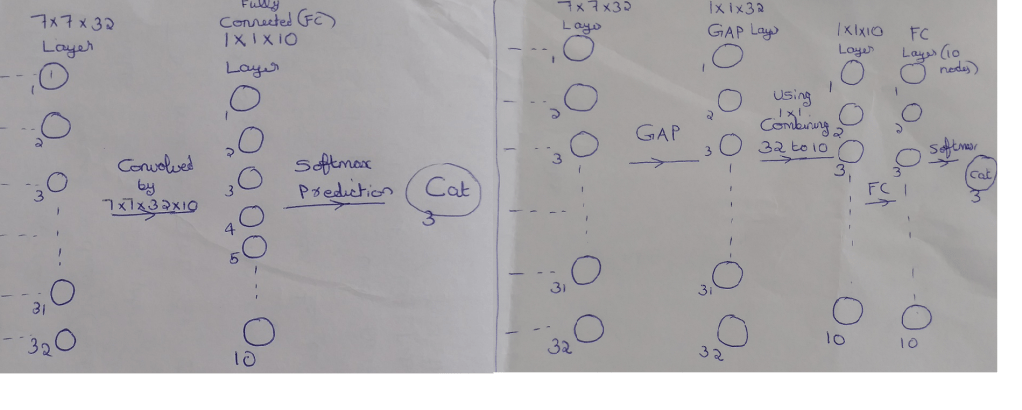 7x7x32
Layer
1
1
2
3
31
32
Convolved
by
7x7x32x10
Fully
Connected (FC)
1x1x10
Layer
1
2
3
4
5
10
Softmax
Prediction
Cat
3
7x7x32
Laye
1
2
3
31
32
GAP
1x1x32
GAP Laye
1
2
3
31
32
Using
1x1
Combining
32 to 10
1x1x10
Layer
1
2
3
10
FC
FC
Layer (10
nodes)
1
2
3
10
Softmax
Cat
3